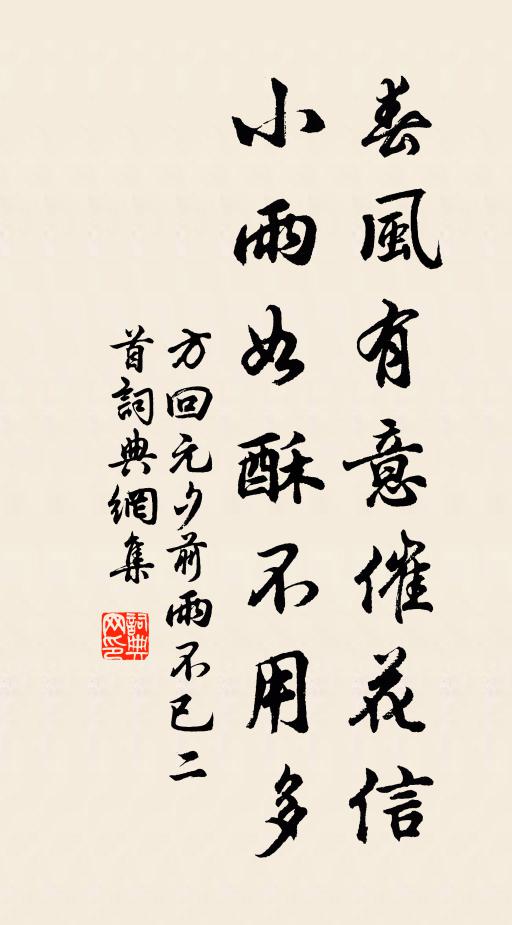 春風有意催花信
小雨如酥不用多
方回元夕前雨不已二
首詞典網集
詞典
网印